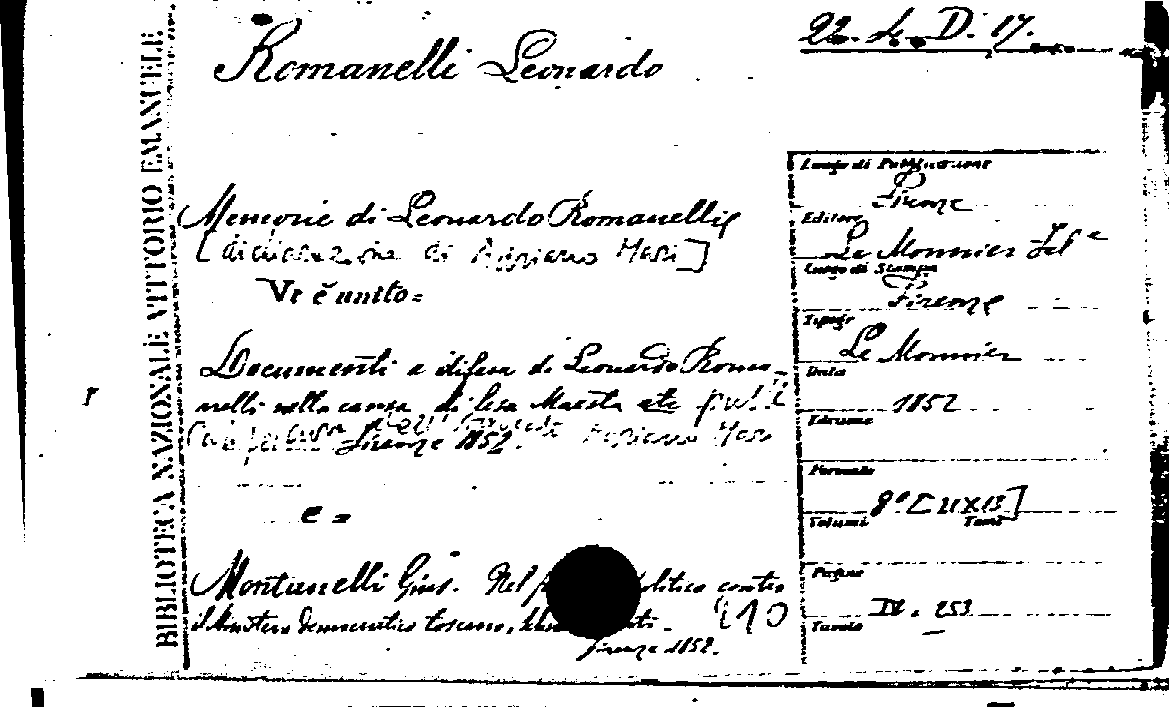 BIBLIOTECA NAZIONALE VITTORIO EMANUELE
22. 4. D. 17.
Romanelli Leonardo
Memorie di Leonardo Romanelli
[dichiarazione di Adriano Mari]
Vi è unito =
Documenti a difesa di Leonardo Roma-
nelli nella causa di lesa Maestà etc pubbl
Firenze 1852. Adriano Mari
e =
Montanelli Gius. Nel politico contro
il Ministero democratico toscano,
210
Firenze 1852.
Luogo di Pubblicazione
Firenze
Editore
Le Monnier Fel e
Luogo di Stampa
Firenze
Tipogr
Le Monnier
Data
1852
Edizione
Formato
8º [21X13]
Volumi Tomi
Pagine
IV. 253
Tavole